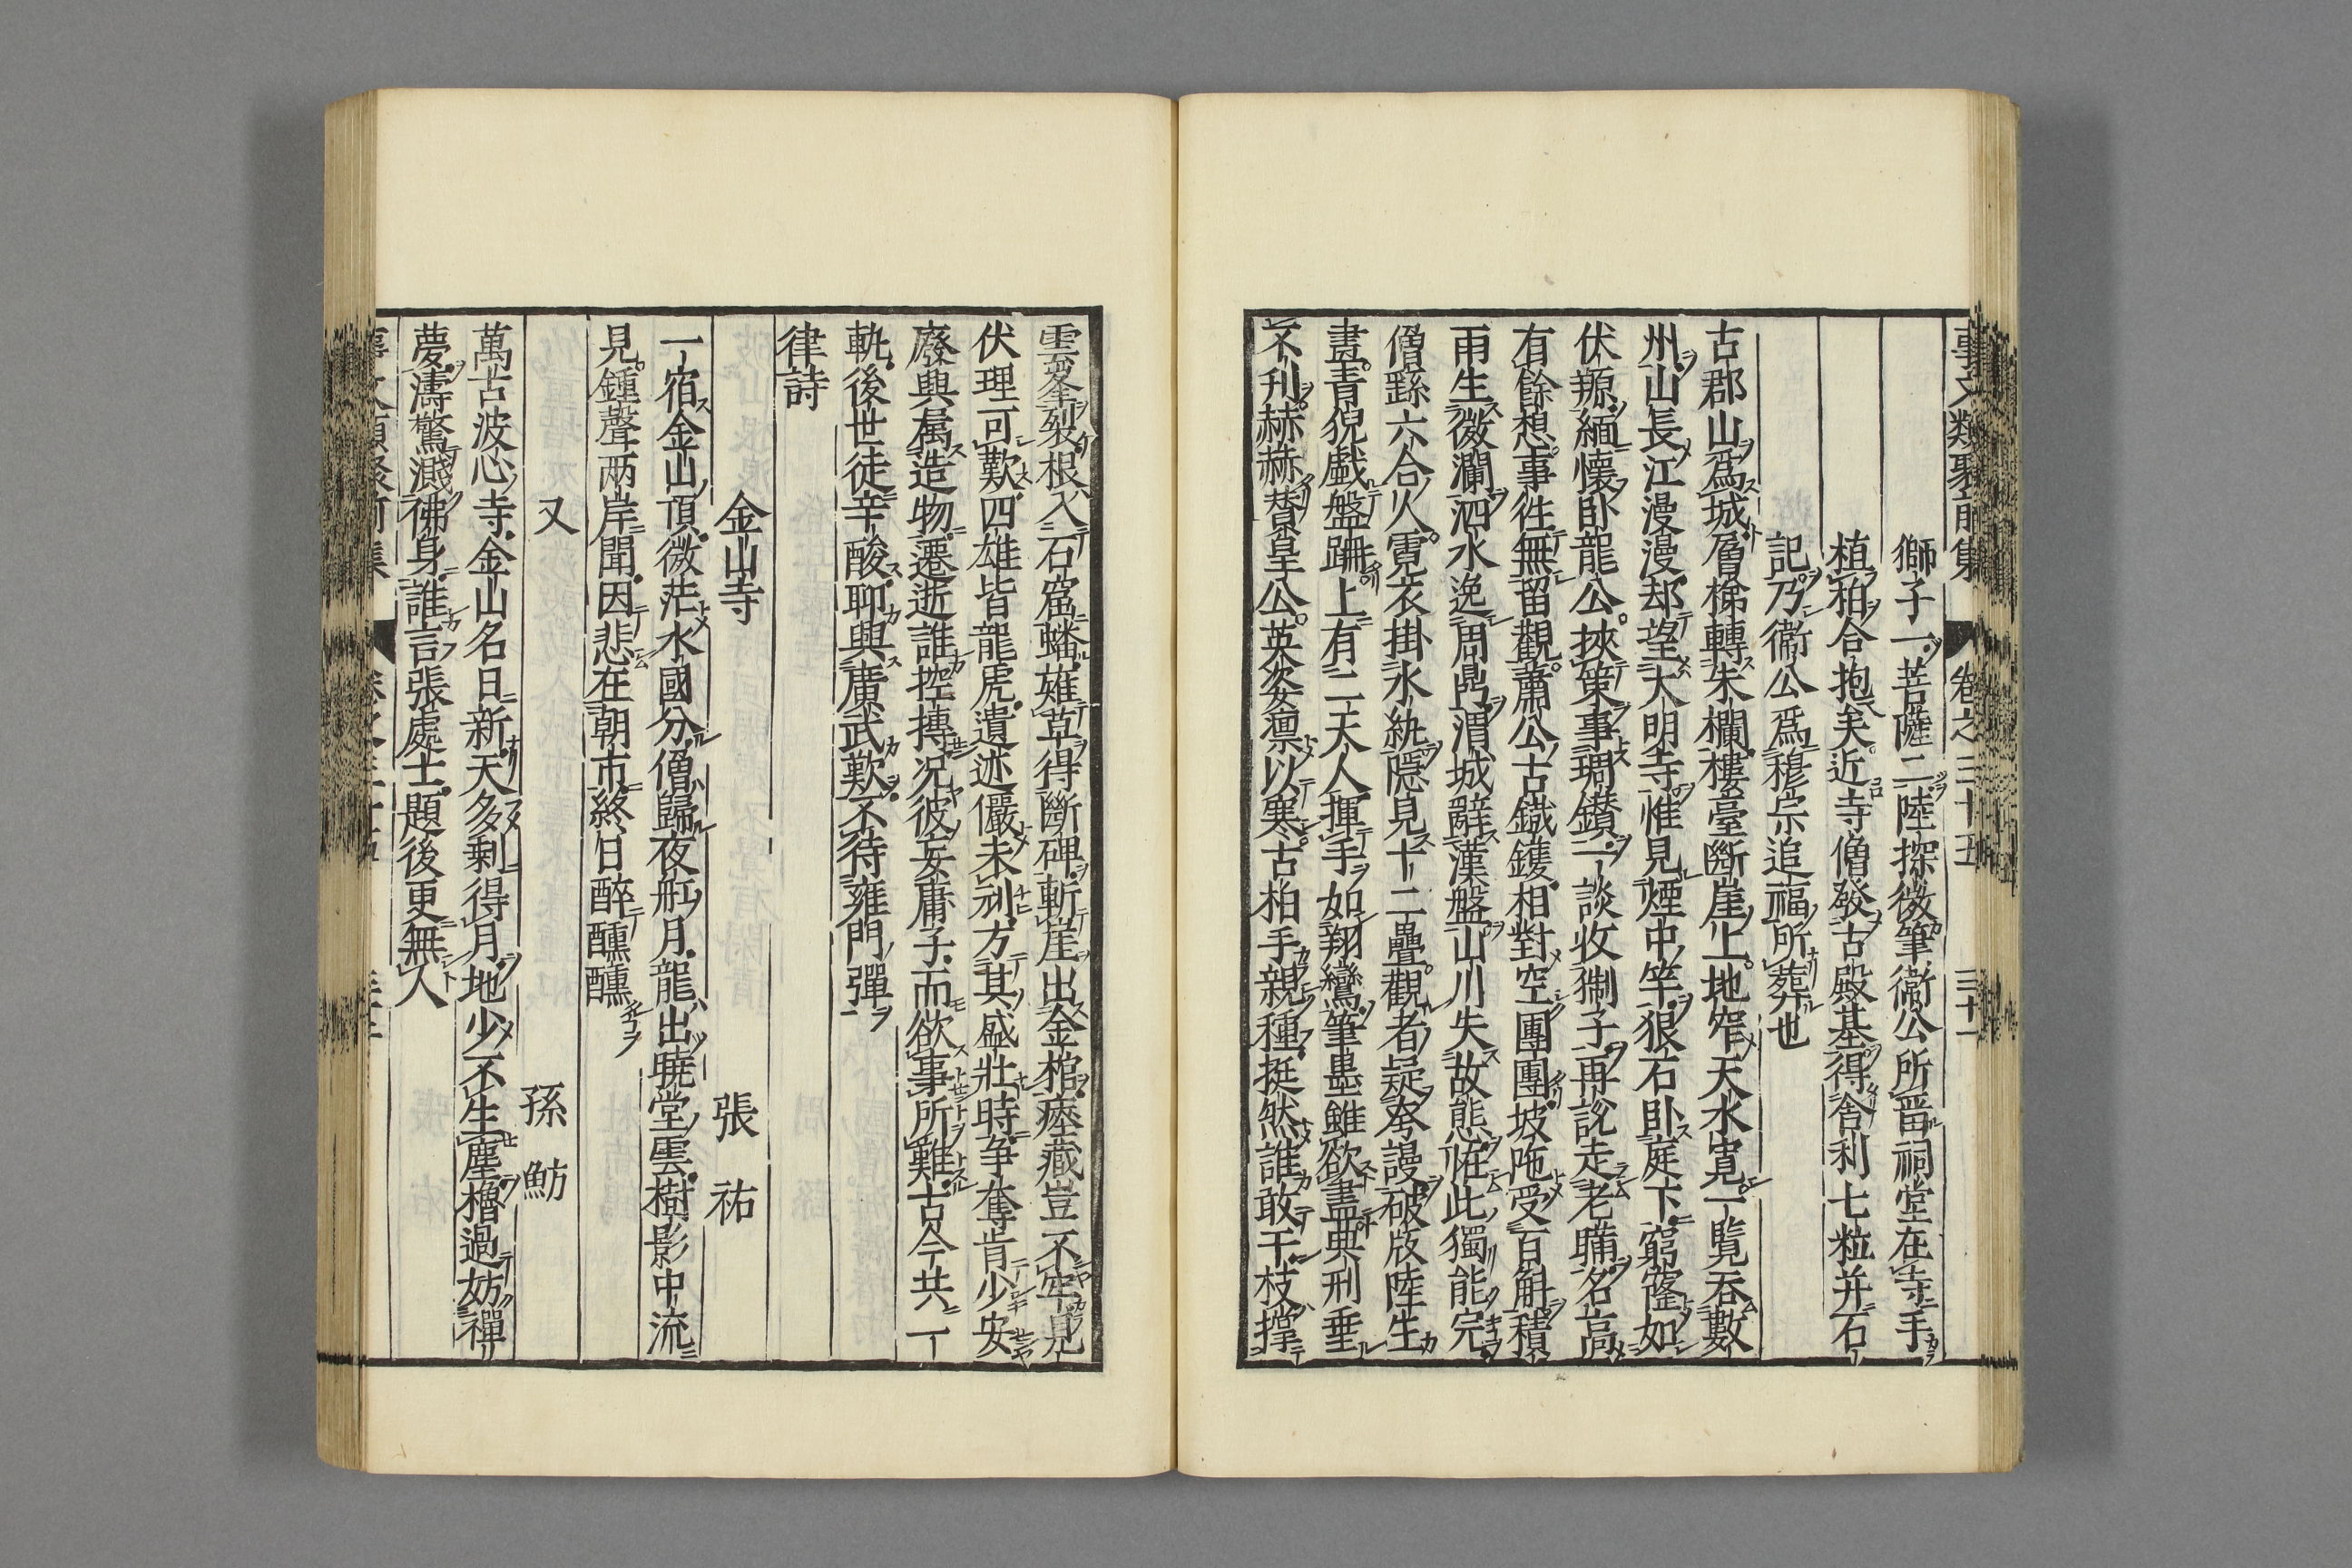 事文類聚前集 卷之三十五 三十一
獅子一菩薩二陸探微筆衞公所留祠堂在寺手
植栢合抱矣近寺僧發古殿基得舍利七粒并石
記乃衞公爲穆宗追福所葬也
古郡山爲城層梯轉朱欄樓臺斷崖上地窄天水寬一覧吞數
州山長江漫漫却望大明寺惟見煙中竿狠石卧庭下窮窿如
伏羱緬懷卧龍公挾策事琱鑽一談收猘子再説走老瞞名高
有餘想事徃無留觀蕭公古鐵鑊相對空團團坡陁受百斛積
雨生微瀾泗水逸周鼎渭城辭漢盤山川失故態恠此獨能完
僧繇六合人霓衣掛氷紈隠見十二疊觀者疑夸謾破版陸生
畫青猊戲盤跚上有二天人揮手如翔鸞筆墨雖欲盡典刑垂
不刋赫赫賛皇公英姿凛以寒古柏手親種挺然誰敢干枝撑
雲峯裂根入石窟蟠薙草得斷碑斬崖出金棺瘞藏豈不牢見
伏理可歎四雄皆龍虎遺迹儼未刓方其盛壯時争奪肯少安
廢興属造物遷逝誰控摶况彼妄庸子而欲事所難古今共一
軌後世徒辛酸聊興廣武歎不待雍門彈
律詩
金山寺 張祐
一宿金山頂微茫水國分僧歸夜舡月龍出暁堂雲樹影中流
見鍾聲兩岸聞因悲在朝市終日醉醺醺
又 孫魴
萬古波心寺金山名日新天多剰得月地少不生塵櫓過妨禪
夢濤驚濺佛身誰言張處士題後更無人